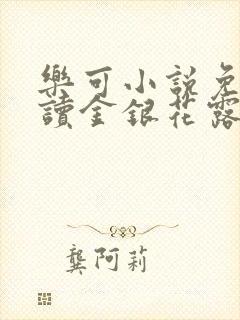 樂可小說免
讀金銀花露
龔阿莉